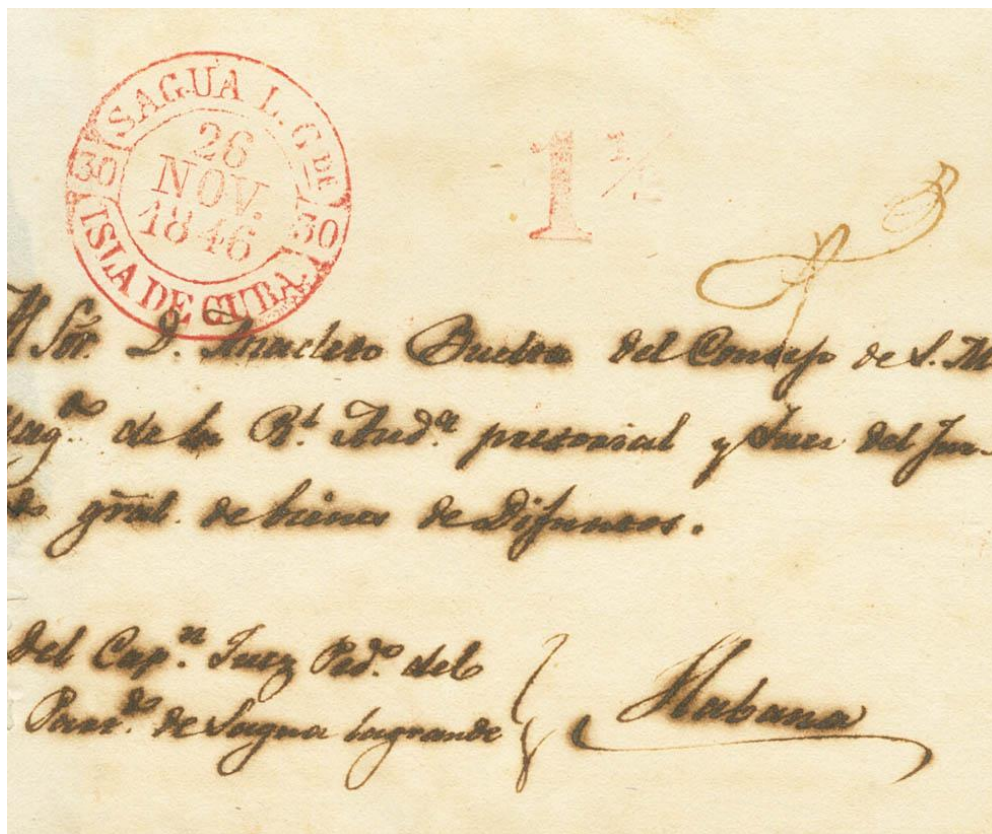 SAGUA L. GDE
30 26 30
NOV.
1846
ISLA DE CUBA.
1 1/2
Sor. D. Anacleto Buelta del Consejo de S. M
de la Rl. Aud.a pretorial y Juez del Juz-
do gral. de bienes de Difuntos.
Del Cap.n Juez Ped.o del
Part.do de Sagua lagrande
Habana